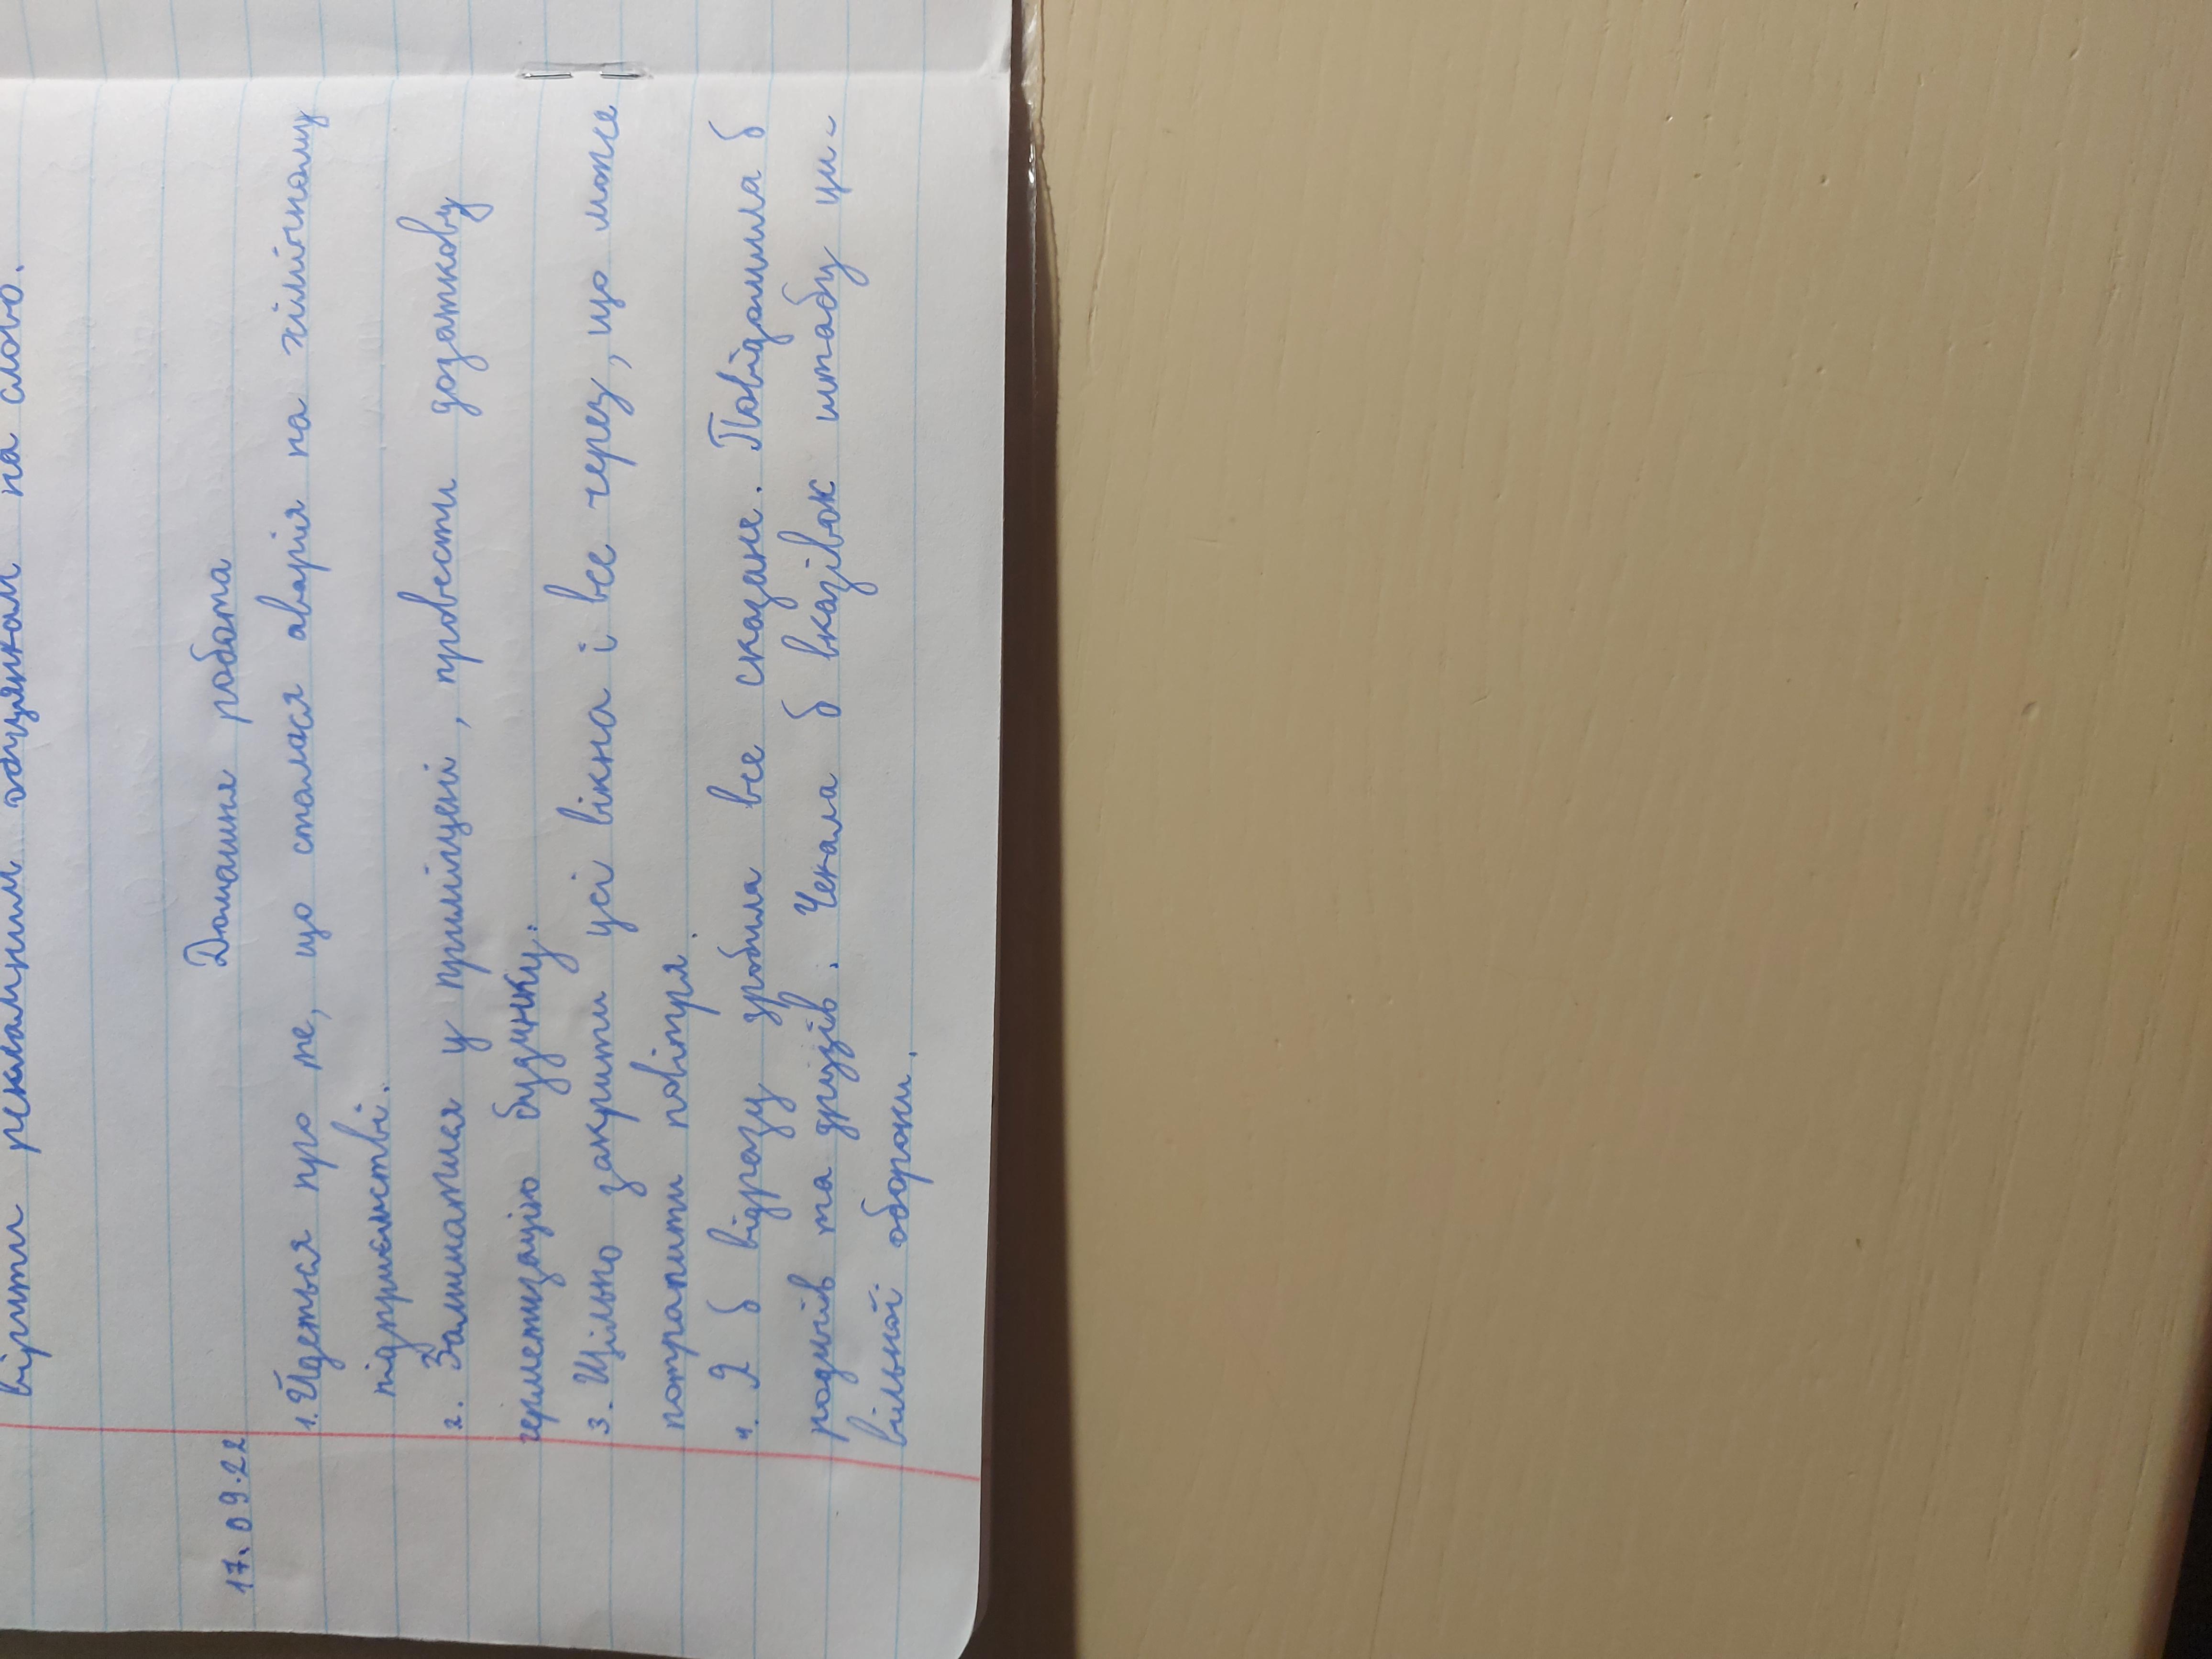 вірити рекламним обіцянкам на слово.
17.09.22
Домашня робота
1. Йдеться про те, що сталася аварія на хімічному
підприємстві.
2. Залишатися у приміщені, провести додаткову
герметизацію будинку.
3. Щільно закрити усі вікна і все через, що може
потрапити повітря.
4. Я б відразу зробила все сказане. Повідомила б
родичів та друзів. Чекала б вказівок штабу ци-
вільної оборони.